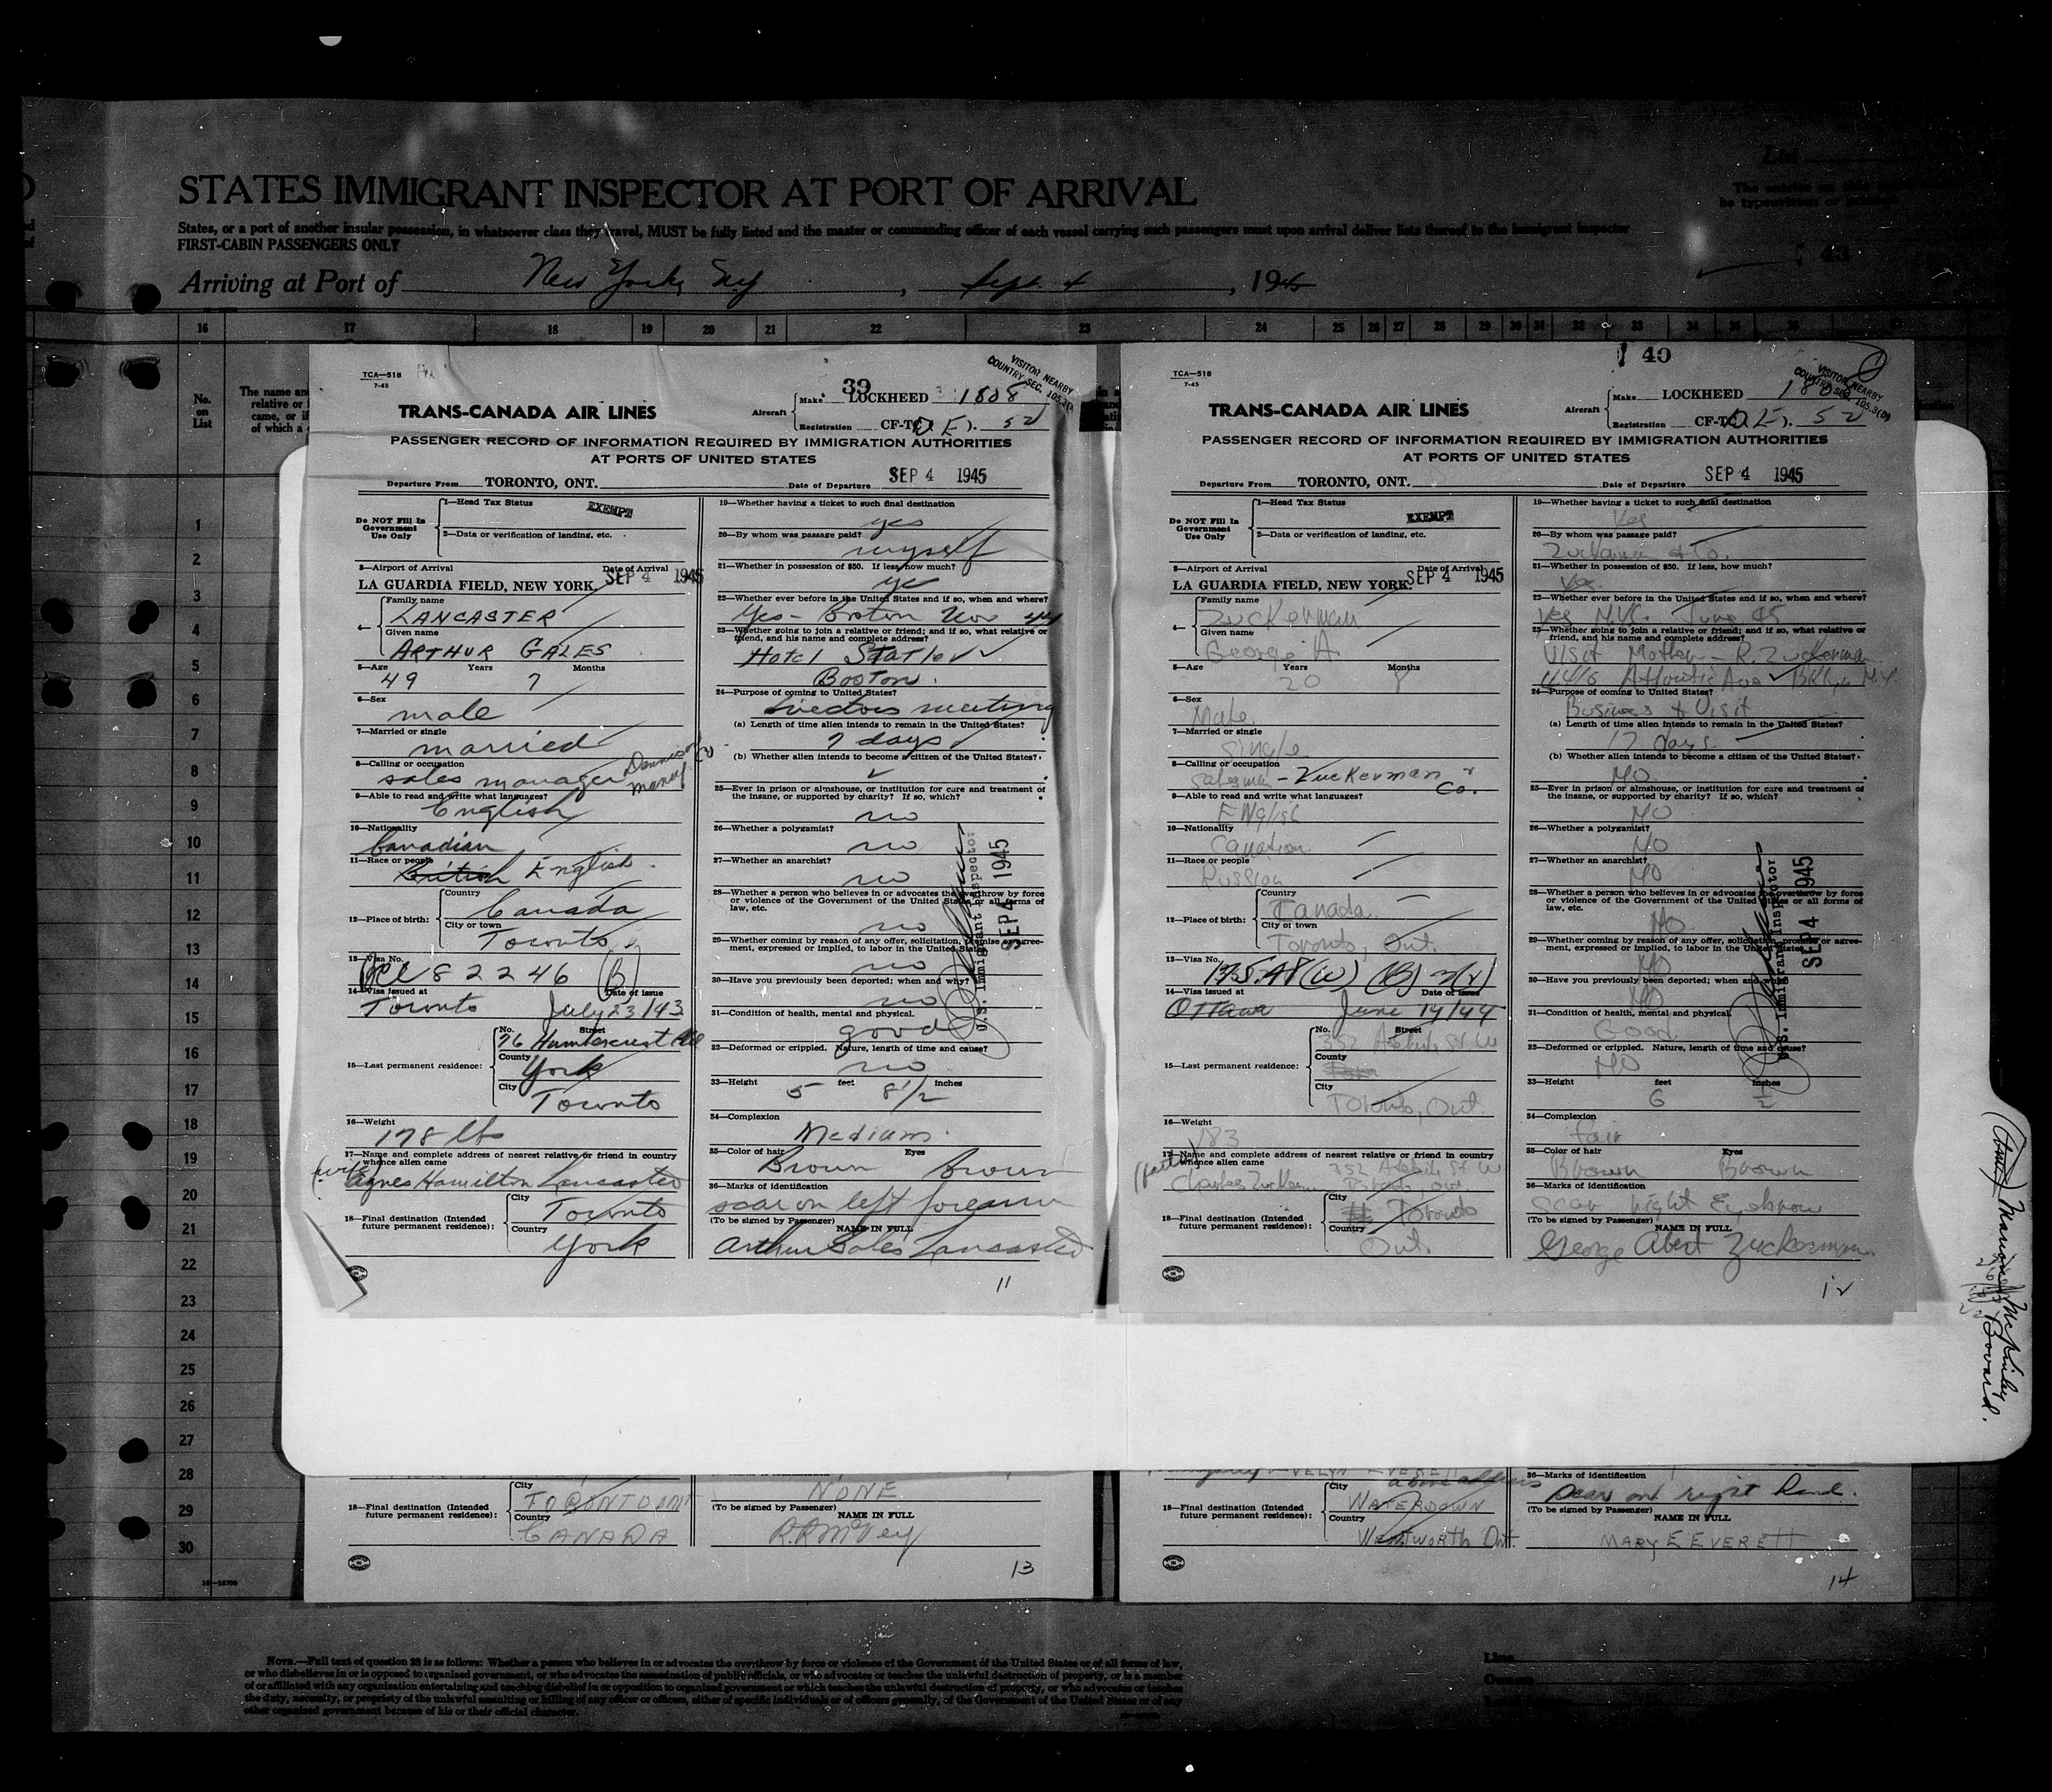 STATES IMMIGRANT INSPECTOR AT PORT OF ARRIVAL
States, or a port of another insular possession, in whatsoever class they travel, MUST be fully listed and the master or commanding officer of each vessel carrying such passengers must upon arrival deliver lists thereof to the immigrant inspector
FIRST-CABIN PASSENGERS ONLY
List
The entries on this
be typewritten or printed
43
Arriving at Port of New York, NY, Sept. 4, 1945
16 17 18 19 20 21 22 23 24 25 26 27 28 29 30 31 32 33 34 35 36
No. on List
The name and
relative or
came, or if
of which a
1
2
3
4
5
6
7
8
9
10
11
12
13
14
15
16
17
18
19
20
21
22
23
24
25
26
27
28
29
30
TCA—518
7-45
39
VISITOR NEARBY
COUNTRY SEC.
TRANS-CANADA AIR LINES
Aircraft
Make LOCKHEED 1808
Registration CF-TC 52
PASSENGER RECORD OF INFORMATION REQUIRED BY IMMIGRATION AUTHORITIES
AT PORTS OF UNITED STATES
Departure From TORONTO, ONT. Date of Departure SEP 4 1945
Do NOT Fill In
Government
Use Only
1—Head Tax Status EXEMPT
2—Data or verification of landing, etc.
3—Airport of Arrival Date of Arrival
LA GUARDIA FIELD, NEW YORK. SEP 4 1945
4—
Family name
LANCASTER
Given name
ARTHUR GALES
5—Age Years Months
49 7
6—Sex
male
7—Married or single
married
8—Calling or occupation
sales manager
9—Able to read and write what languages?
English
10—Nationality
Canadian
11—Race or people
British English
12—Place of birth:
Country
Canada
City or town
Toronto
13—Visa No.
82246 (B)
14—Visa issued at Date of issue
Toronto July 23/43
15—Last permanent residence:
No. Street
26 Humbercrest
County
York
City
Toronto
16—Weight
178 lbs
17—Name and complete address of nearest relative or friend in country
whence alien came
(wife) Agnes Hamilton Lancaster
18—Final destination (Intended
future permanent residence):
City
Toronto
Country
York
19—Whether having a ticket to such final destination
yes
20—By whom was passage paid?
myself
21—Whether in possession of $50. If less, how much?
yes
22—Whether ever before in the United States and if so, when and where?
Yes - Boston Nov 44
23—Whether going to join a relative or friend; and if so, what relative or
friend, and his name and complete address?
Hotel Statler
Boston.
24—Purpose of coming to United States?
Directors meeting
(a) Length of time alien intends to remain in the United States?
7 days
(b) Whether alien intends to become a citizen of the United States?
25—Ever in prison or almshouse, or institution for care and treatment of
the insane, or supported by charity? If so, which?
no
26—Whether a polygamist?
no
27—Whether an anarchist?
no
28—Whether a person who believes in or advocates the overthrow by force
or violence of the Government of the United States or all forms of
law, etc.
no
29—Whether coming by reason of any offer, solicitation, promise or agree-
ment, expressed or implied, to labor in the United States?
no
30—Have you previously been deported; when and why?
no
31—Condition of health, mental and physical.
good
32—Deformed or crippled. Nature, length of time and cause?
no
33—Height 5 feet 8 1/2 inches
34—Complexion
Medium
35—Color of hair Eyes
Brown Brown
36—Marks of identification
scar on left forearm
(To be signed by Passenger) NAME IN FULL
Arthur Gales Lancaster
U.S. Immigrant Inspector
SEP 4 1945
11
TCA—518
7-45
40
VISITOR NEARBY
COUNTRY SEC. 105.3(D)
TRANS-CANADA AIR LINES
Aircraft
Make LOCKHEED
Registration CF-TC 52
PASSENGER RECORD OF INFORMATION REQUIRED BY IMMIGRATION AUTHORITIES
AT PORTS OF UNITED STATES
Departure From TORONTO, ONT. Date of Departure SEP 4 1945
Do NOT Fill In
Government
Use Only
1—Head Tax Status EXEMPT
2—Data or verification of landing, etc.
3—Airport of Arrival Date of Arrival
LA GUARDIA FIELD, NEW YORK. SEP 4 1945
4—
Family name
Zuckerman
Given name
George A.
5—Age Years Months
20 8
6—Sex
Male
7—Married or single
Single
8—Calling or occupation
Salesman - Zuckerman + Co.
9—Able to read and write what languages?
English
10—Nationality
Canadian
11—Race or people
Russian
12—Place of birth:
Country
Canada
City or town
Toronto, Ont.
13—Visa No.
14—Visa issued at Date of issue
Ottawa June 14/44
15—Last permanent residence:
No. Street
352 Adelaide St W
County
City
Toronto, Ont.
16—Weight
183
17—Name and complete address of nearest relative or friend in country
whence alien came
352 Adelaide St W
Charles Zuckerman Toronto, Ont.
18—Final destination (Intended
future permanent residence):
City
Toronto
Country
Ont.
19—Whether having a ticket to such final destination
Yes
20—By whom was passage paid?
Zuckerman & Co.
21—Whether in possession of $50. If less, how much?
Yes
22—Whether ever before in the United States and if so, when and where?
Yes N.Y.C. June 45
23—Whether going to join a relative or friend; and if so, what relative or
friend, and his name and complete address?
Visit Mother - R. Zuckerman
Atlantic Ave Bklyn N.Y.
24—Purpose of coming to United States?
Business & Visit
(a) Length of time alien intends to remain in the United States?
17 days
(b) Whether alien intends to become a citizen of the United States?
No
25—Ever in prison or almshouse, or institution for care and treatment of
the insane, or supported by charity? If so, which?
No
26—Whether a polygamist?
No
27—Whether an anarchist?
No
28—Whether a person who believes in or advocates the overthrow by force
or violence of the Government of the United States or all forms of
law, etc.
No
29—Whether coming by reason of any offer, solicitation, promise or agree-
ment, expressed or implied, to labor in the United States?
No
30—Have you previously been deported; when and why?
No
31—Condition of health, mental and physical.
Good
32—Deformed or crippled. Nature, length of time and cause?
No
33—Height 6 feet 1/2 inches
34—Complexion
fair
35—Color of hair Eyes
Brown Brown
36—Marks of identification
Scar Right Eyebrow
(To be signed by Passenger) NAME IN FULL
George Albert Zuckerman
U.S. Immigrant Inspector
SEP 4 1945
12
(Aunt) Marion McKinley
Bovaird.
18—Final destination (Intended
future permanent residence):
City
TORONTO ONT
Country
CANADA
NONE
(To be signed by Passenger)
NAME IN FULL
R.R. McVey
13
EVELYN EVERETT
above address
18—Final destination (Intended
future permanent residence):
City
WATERDOWN
Country
WENTWORTH Ont.
36—Marks of identification
scar on right hand.
(To be signed by Passenger)
NAME IN FULL
MARY E EVERETT
14
NOTE.—Full text of question 28 is as follows: Whether a person who believes in or advocates the overthrow by force or violence of the Government of the United States or of all forms of law,
or who disbelieves in or is opposed to organized government, or who advocates the assassination of public officials, or who advocates or teaches the unlawful destruction of property, or is a member
of or affiliated with any organization entertaining and teaching disbelief in or opposition to organized government or which teaches the unlawful destruction of property, or who advocates or teaches
the duty, necessity, or propriety of the unlawful assaulting or killing of any officer or officers, either of specific individuals or of officers generally, of the Government of the United States or of any
other organized government because of his or their official character.
Line
Owners